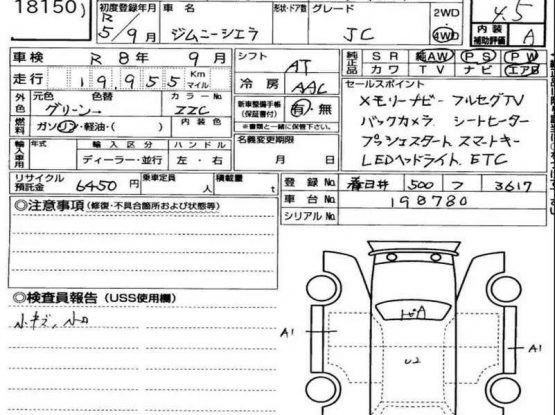 18150)
初度登録年月
R
5/9月
車名
ジムニーシエラ
形状・ドア数
グレード
JC
2WD
4WD
4.5
内装
補助評価
A
車検
R 8年 9月
シフト
AT
純正品
SR
純AW
PS
PW
カワ
TV
ナビ
エアB
走行
19,955
Km
マイル
冷房
AAC
セールスポイント
メモリーナビー フルセグTV
バックカメラ シートヒーター
プッシュスタート スマートキー
LEDヘッドライト. ETC
外色
元色
色替
カラーNo.
グリーン→
ZZC
新車整備手帳
(保証書付)
有・無
※書類と一緒に保管下さい。
燃料
ガソリン・軽油・( )
内装色
輸入車用
年式
輸入区分
ハンドル
ディーラー・並行
左・右
名義変更期限
月 日
リサイクル
預託金
6450円
乗車定員
人
積載量
t
登録No.
春日井
500
フ
3617
車台No.
190780
シリアルNo.
◎注意事項(修復・不具合箇所および状態等)
◎検査員報告(USS使用欄)
小キズ、小凹
A1
A1
U2